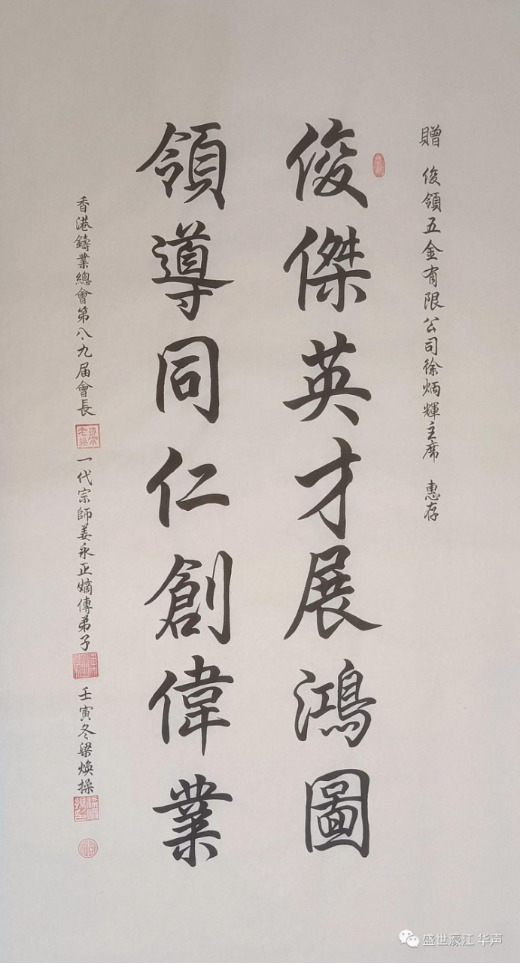 贈 俊領五金有限公司徐炳輝主席 惠存
俊傑英才展鴻圖
領導同仁創偉業
香港鑄業總會第八、九届會長 一代宗師姜永正嫡傳弟子 壬寅冬梁煥操
盛世濠江 华声